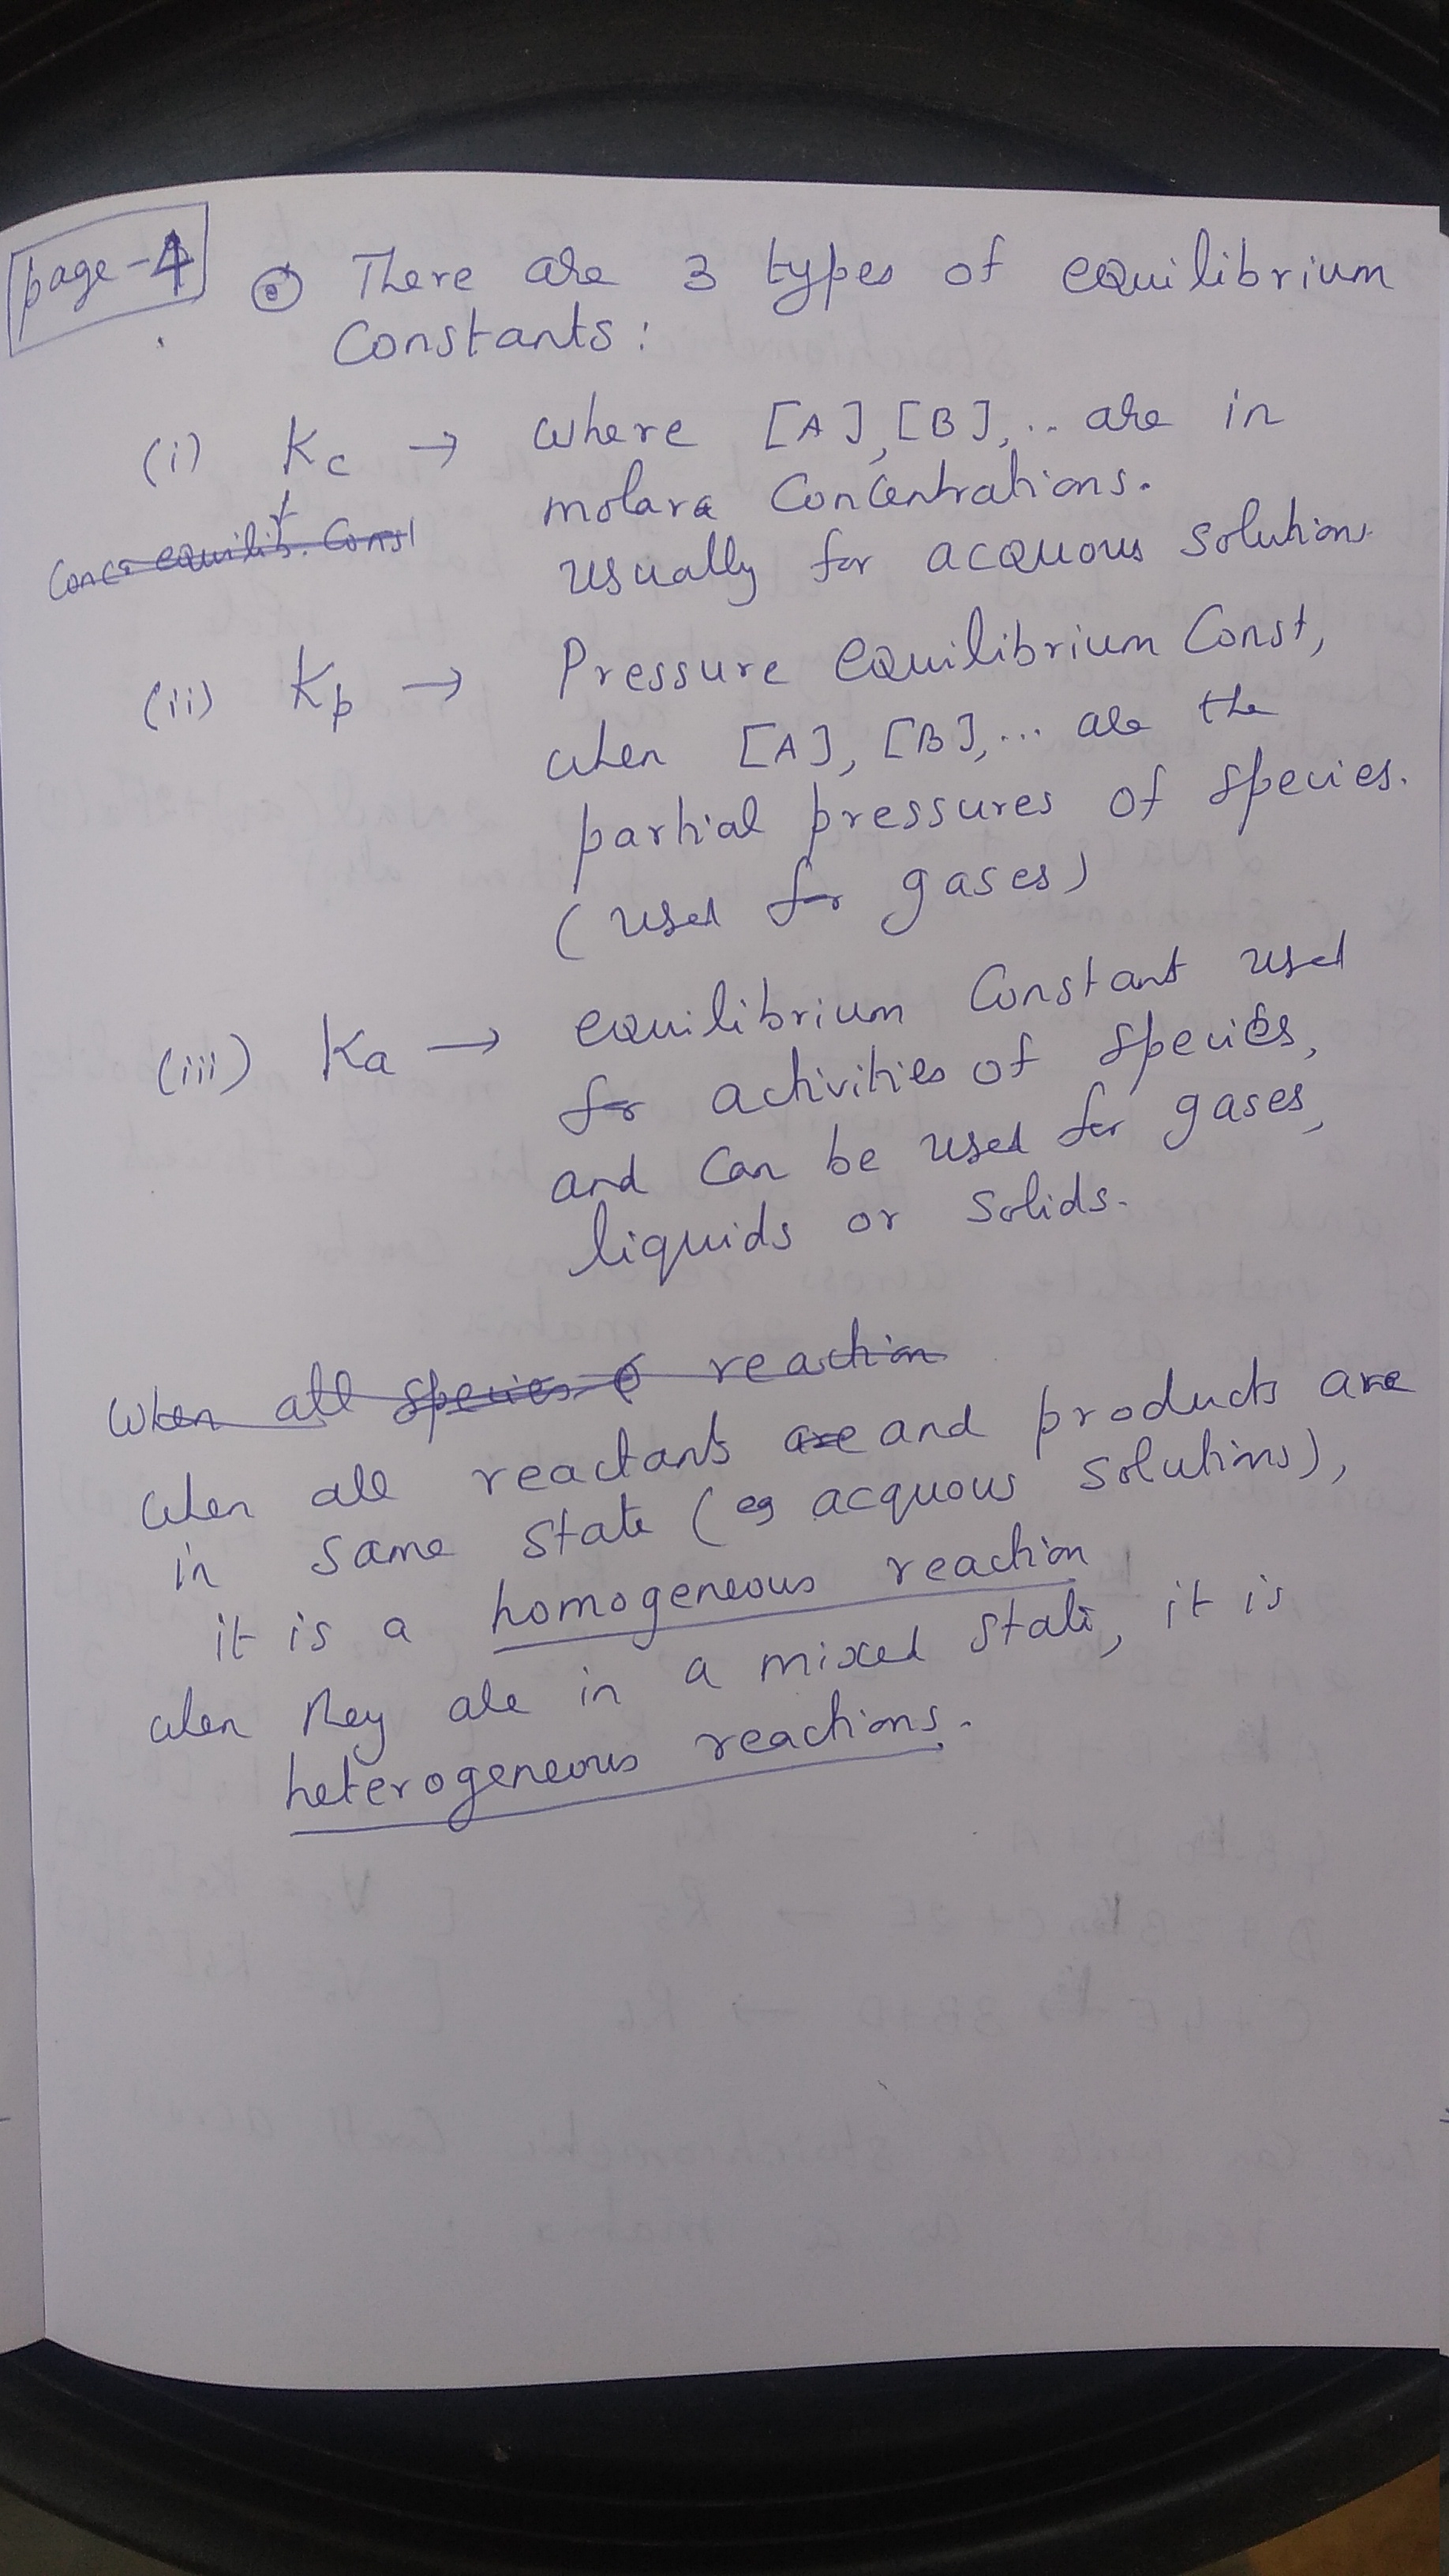 page-4
There are 3 types of equilibrium
Constants:
(i) Kc → where [A], [B], .. are in
molar Concentrations.
Conc. equilib. Const
usually for acquous solutions.
(ii) Kp → Pressure equilibrium Const,
when [A], [B], ... are the
partial pressures of species.
(used for gases)
(iii) Ka → equilibrium Constant used
for activities of species,
and can be used for gases,
liquids or solids.
When all species reaction
When all reactants are and products are
in same state (eg acquous solutions),
it is a homogeneous reaction
when they are in a mixed state, it is
heterogeneous reactions.